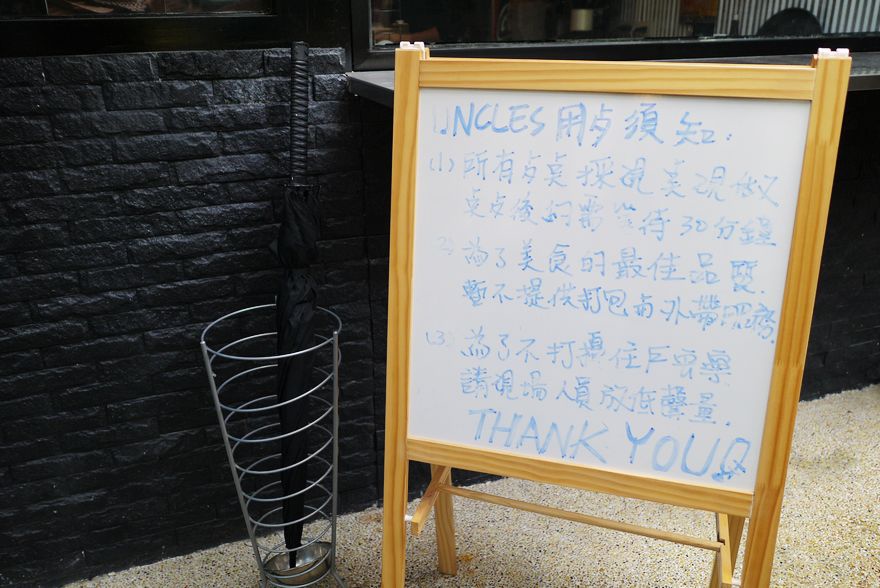 UNCLES 用点須知:
(1) 所有点桌採現点現做
点後約需等待30分鐘
(2) 為了美食的最佳品質.
暫不提供打包与外帶服務.
(3) 為了不打擾住戶安寧
請現場人員放低聲量.
THANK YOU